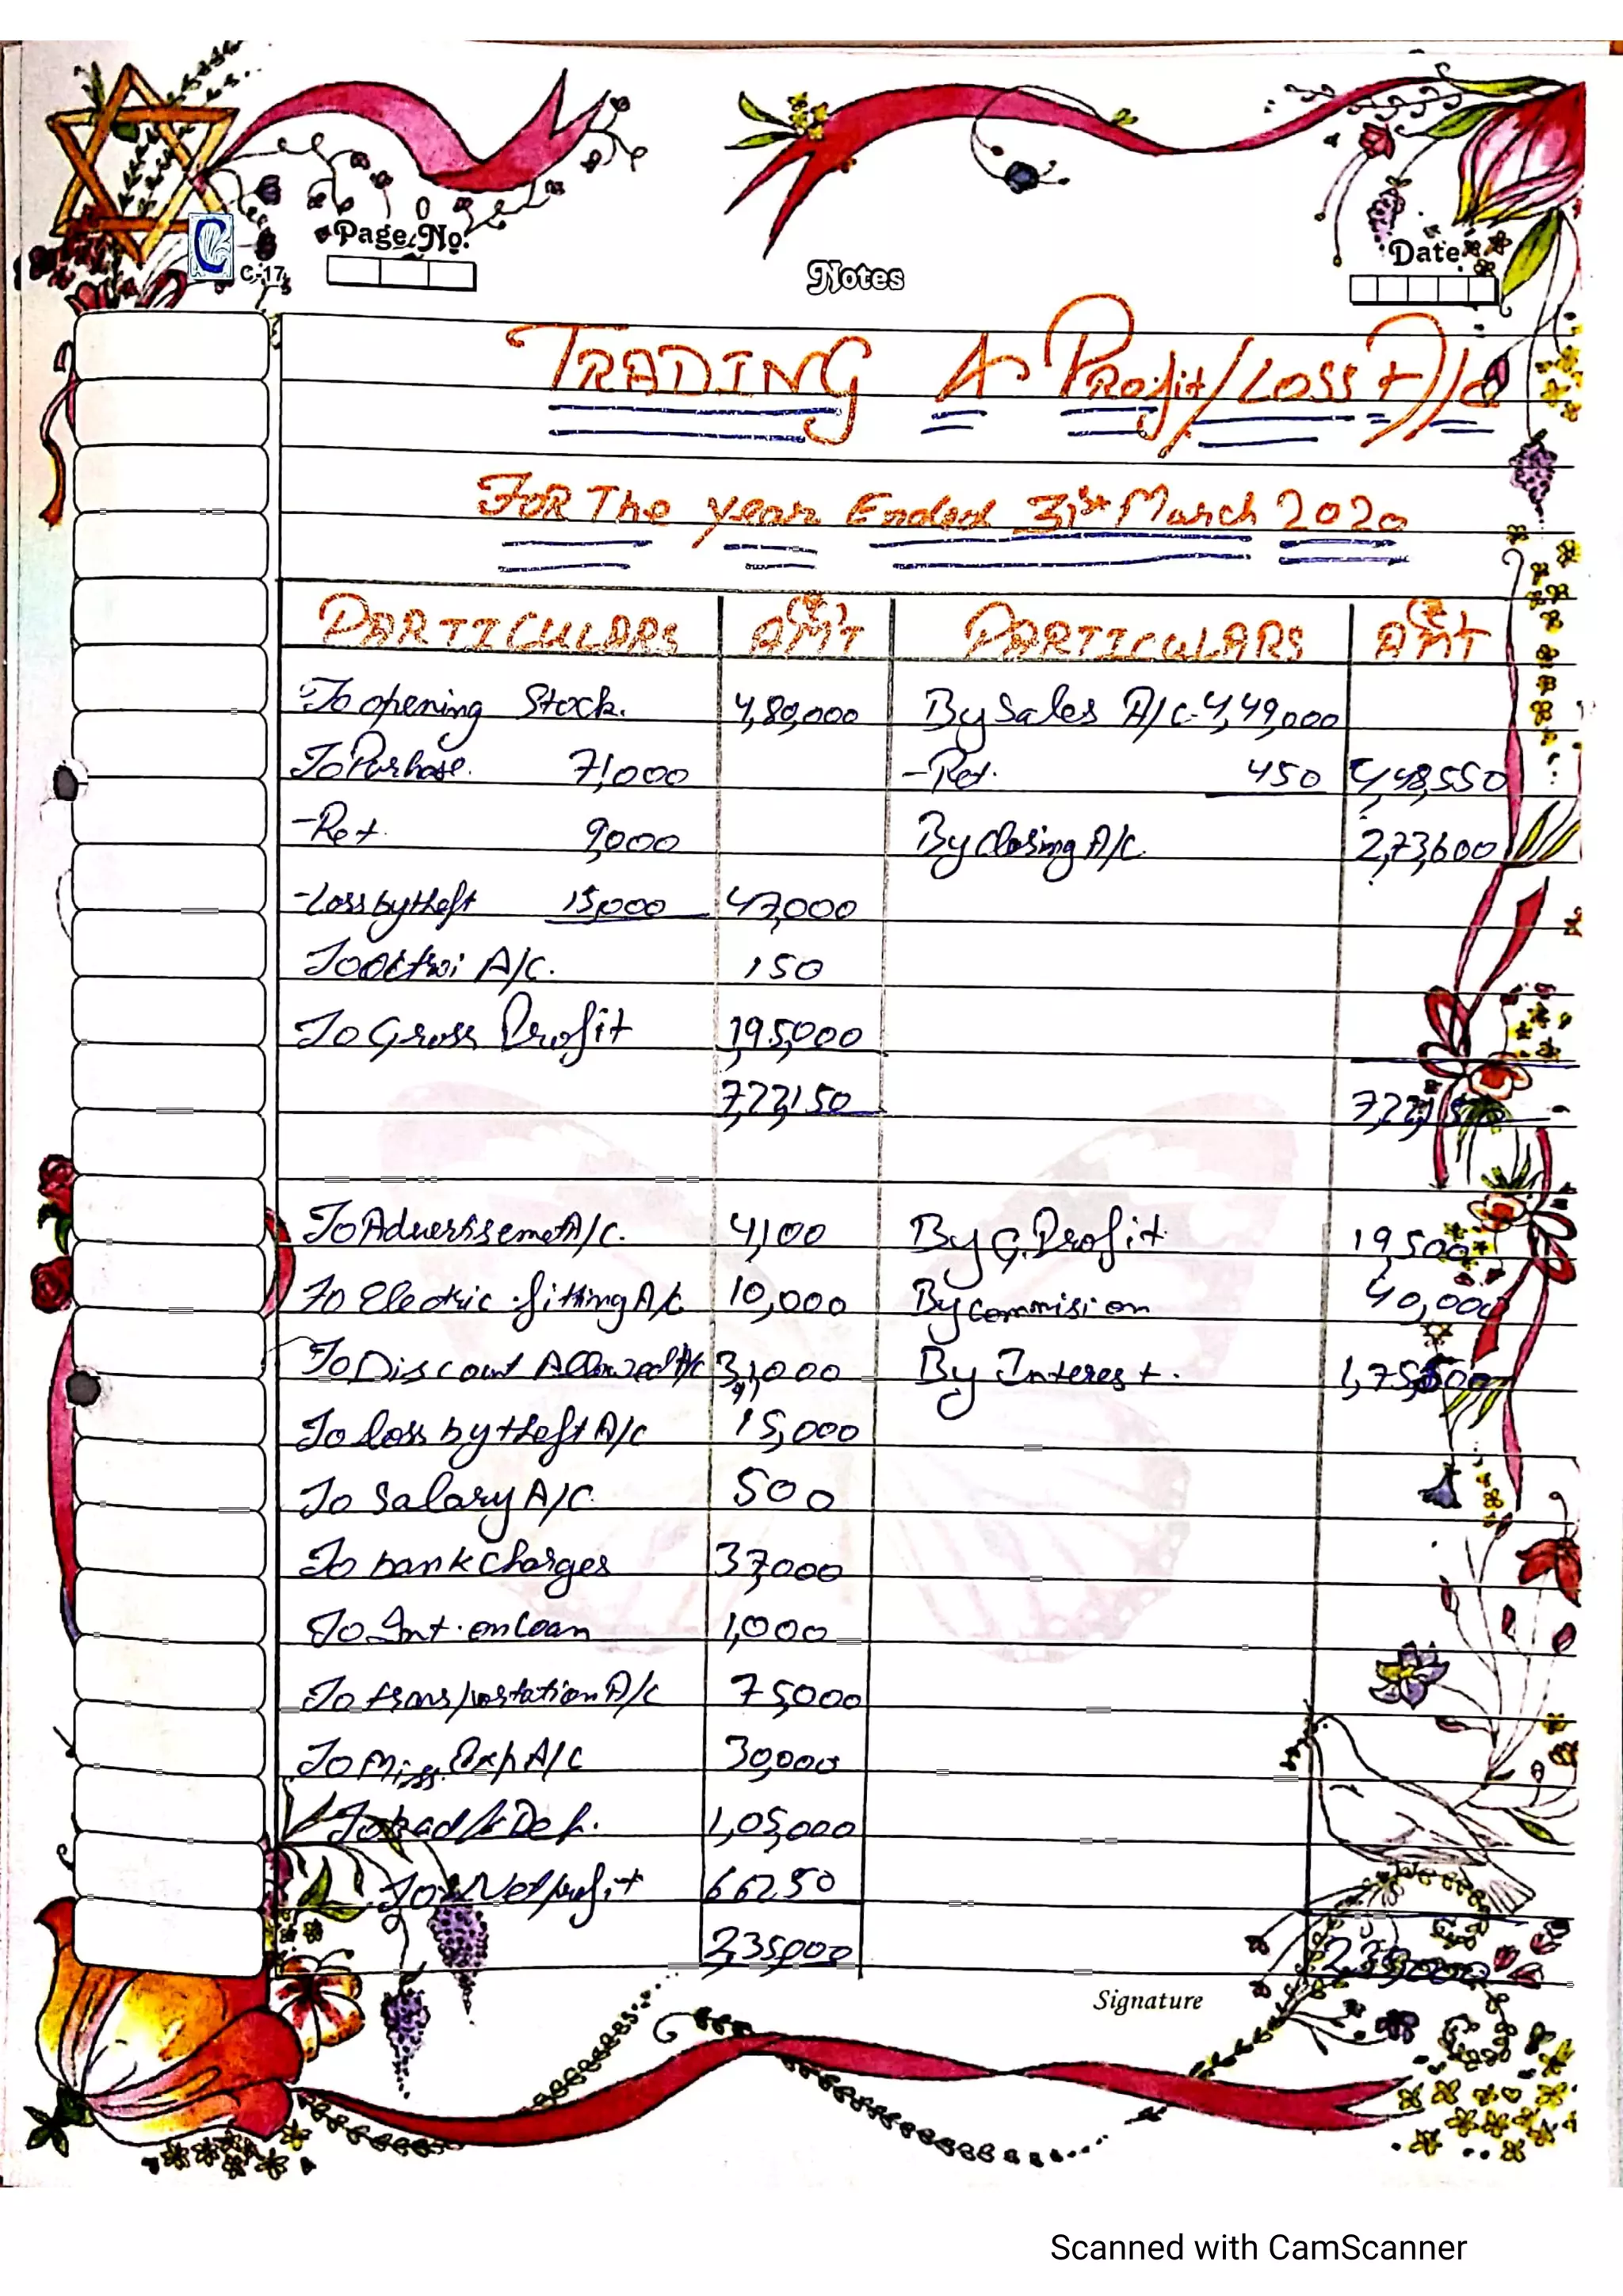 C
C-17
Page No.
Notes
Date
TRADING A Profit/LOSS A/c
FOR The year Ended 31st March 2020
PARTICULARS AMT PARTICULARS AMT
To opening Stock. 4,80,000 By Sales A/C-4,49,000
To Purhase. 71,000 -Ret. 450 4,48,550
-Ret. 9,000 By Closing A/C. 2,73,600
-Loss by theft 15,000 47,000
To Octroi A/C. 150
To Gross Profit 195,000
7,22,150 7,22,150
To Advertisement A/C. 4,100 By G. Profit 19,500
To Electric fitting A/C 10,000 By Commision 40,000
To Discount Allowed A/C 31,000 By Interest.
To loss by theft A/C 15,000
To Salary A/C. 500
To bank charges 37,000
To Int. on Loan 1,000
To transportation A/C 75,000
To Miss. Exp A/C 30,000
1,05,000
To Net profit 66250
2,35,000
Signature
Scanned with CamScanner